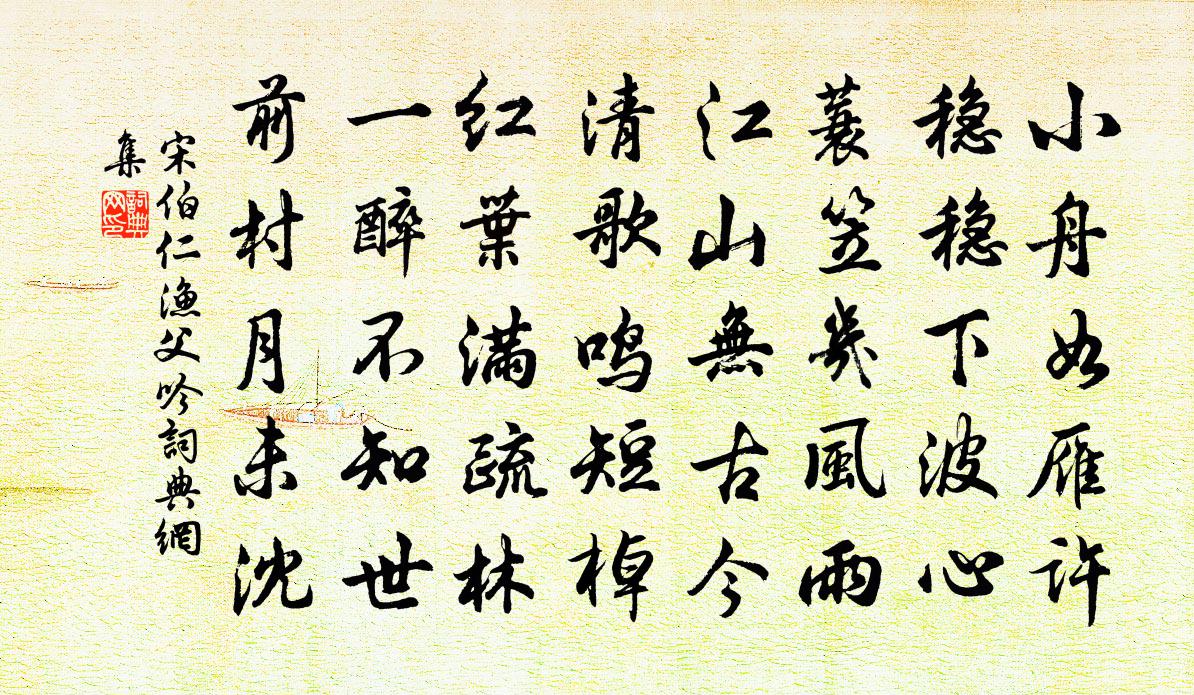 小舟如雁许
稳稳下波心
蓑笠幾風雨
江山無古今
清歌鸣短棹
红葉满疏林
一醉不知世
前村月未沈
宋伯仁渔父吟詞典網
集
詞典网印